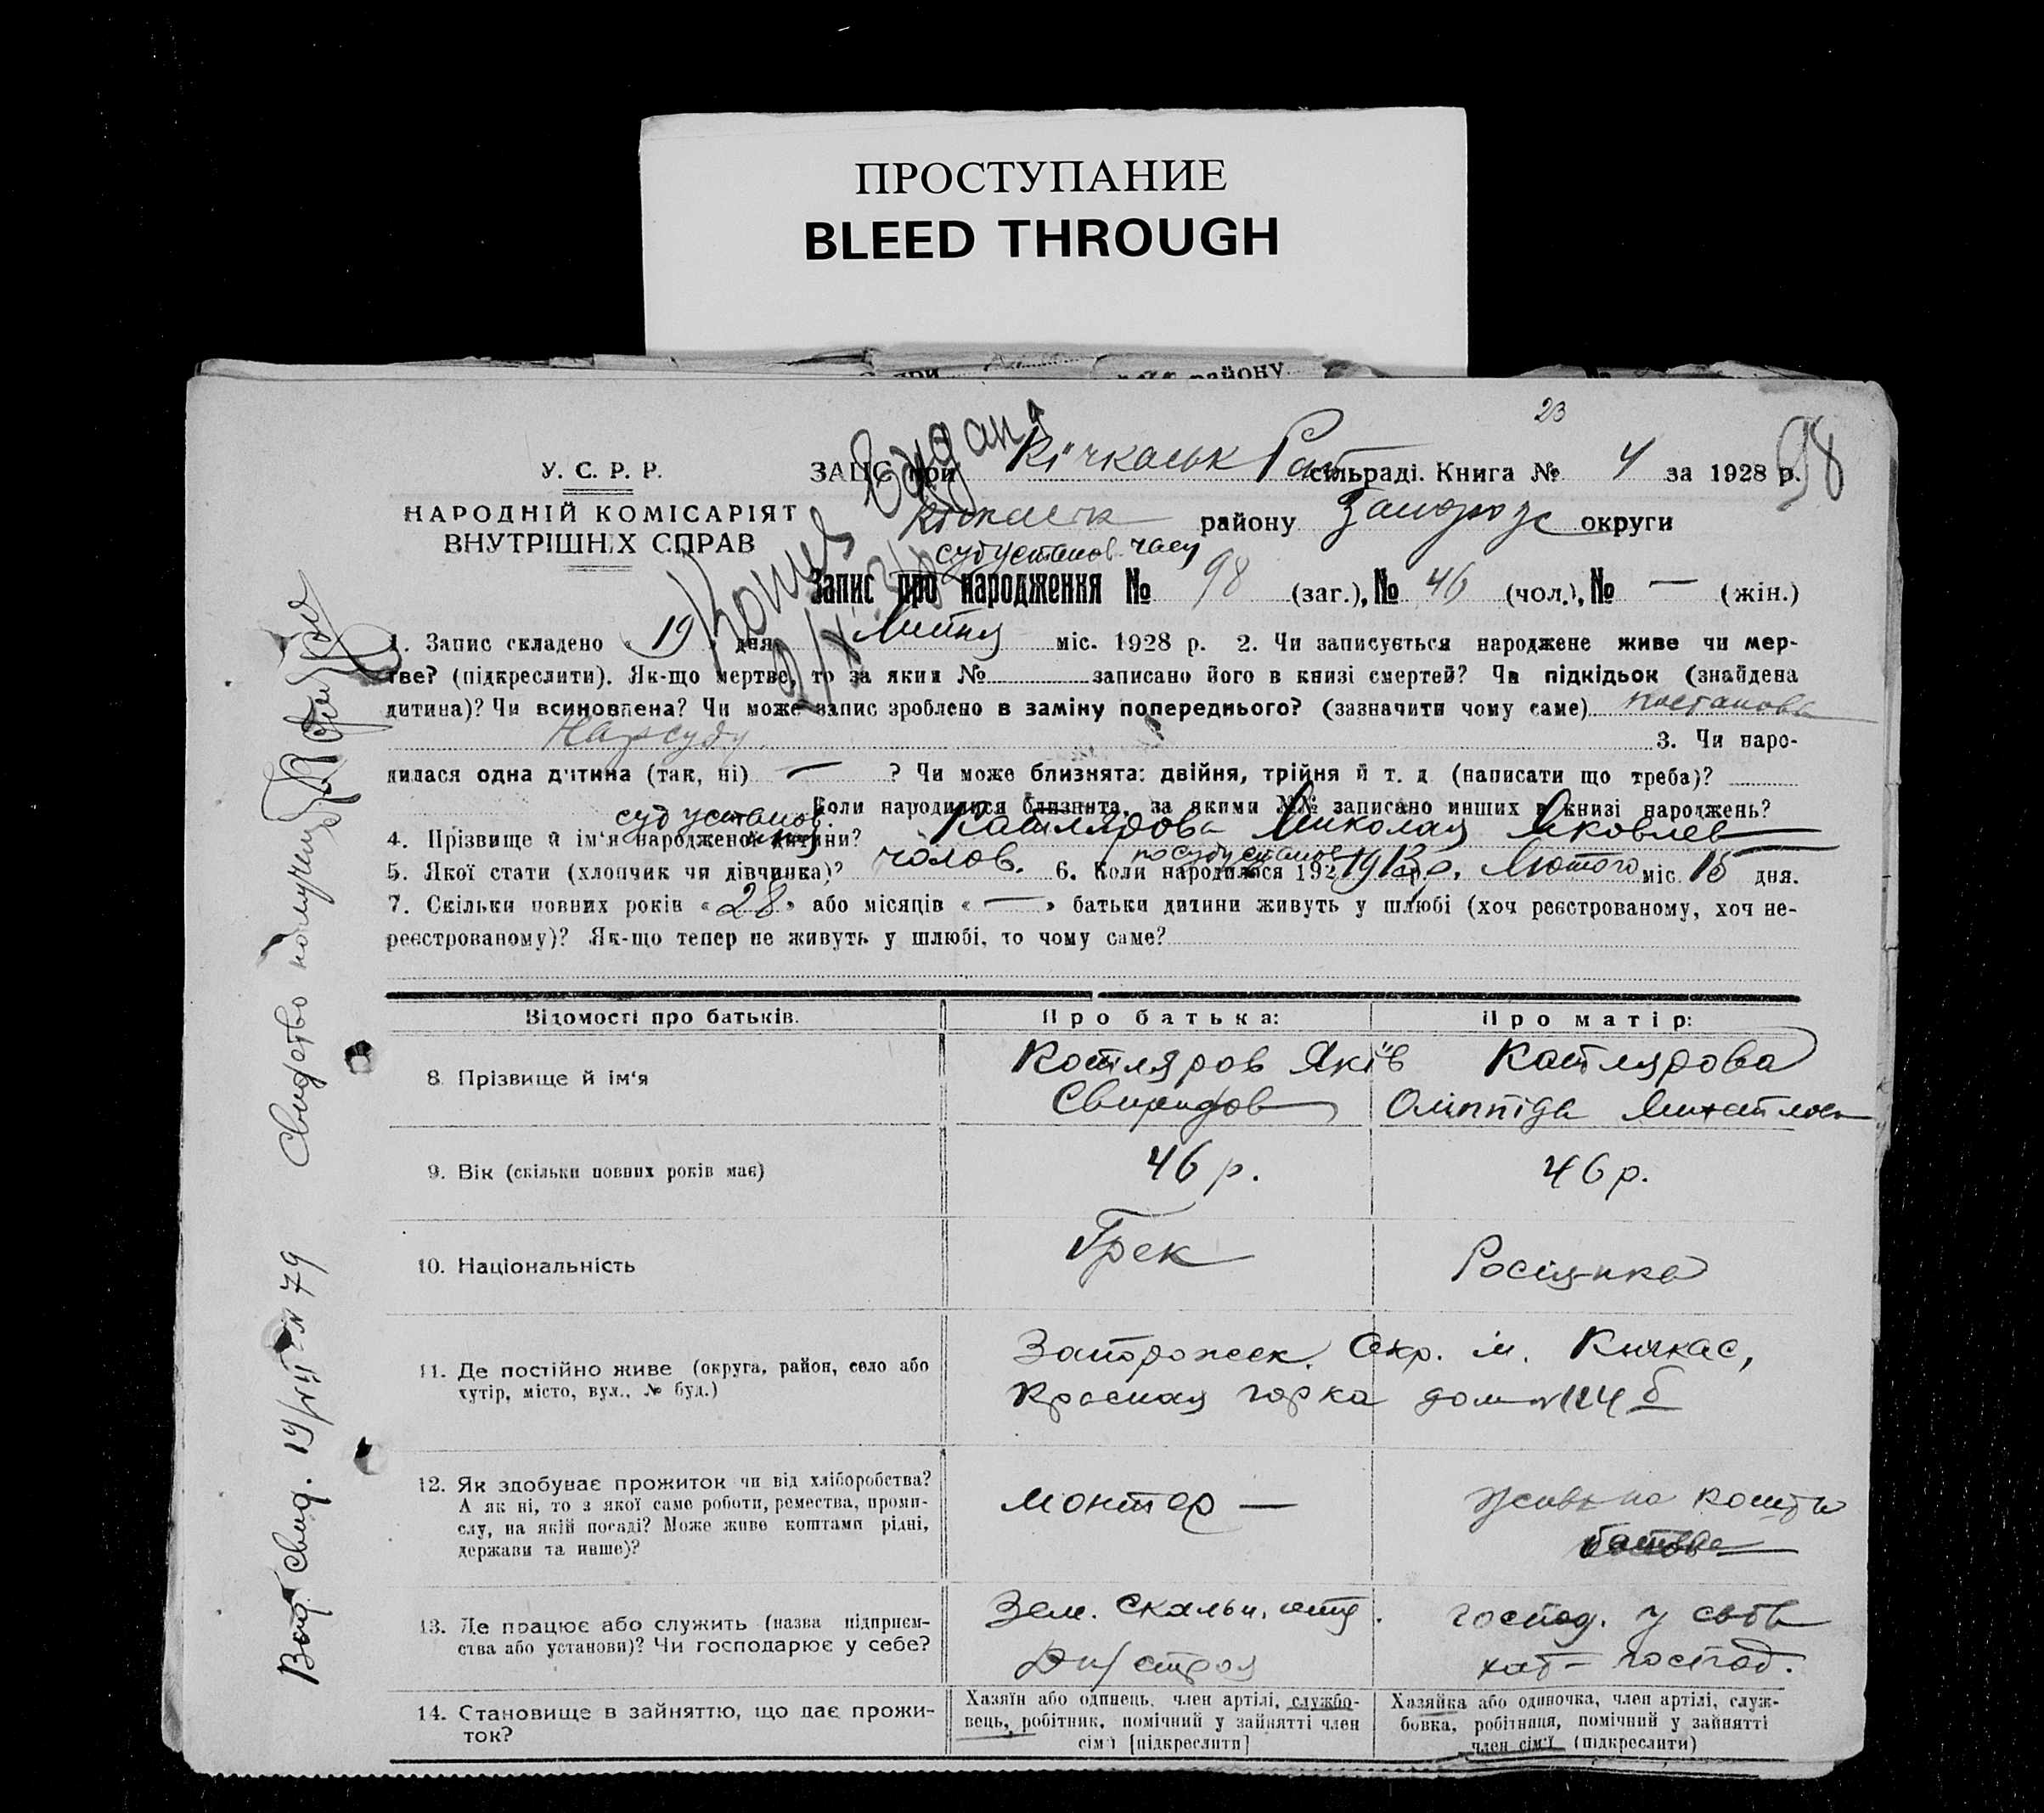 ПРОСТУПАНИЕ
BLEED THROUGH
при району
23
98
У. С. Р. Р.
НАРОДНІЙ КОМІСАРІЯТ
ВНУТРІШНІХ СПРАВ
Копія Видана
ЗАПИС при Кічкаськ Рай сільраді. Книга № 4 за 1928 р.
Кічкаськ району Запоріз округи
суд установ часу
Запис про народження № 98 (заг.), № 46 (чол.), № — (жін.)
1. Запис складено « 19 » дня Липня міс. 1928 р. 2. Чи записується народжене живе чи мер-
тве? (підкреслити). Як-що мертве, то за яким № записано його в книзі смертей? Чи підкідьок (знайдена
дитина)? Чи всиновлена? Чи може запис зроблено в заміну попереднього? (зазначити чому саме) постанова
Нарсуду 3. Чи наро-
дилася одна дитина (так, ні) — ? Чи може близнята: двійня, трійня й т. д. (написати що треба)?
Коли народилися близнята, за якими №№ записано инших в книзі народжень?
суд установ.
4. Прізвище й ім'я народженої дитини? Котлярова Миколая Яковлев
по суду установ
5. Якої стати (хлопчик чи дівчинка)? чолов. 6. Коли народилося 192 1913 р. Лютого міс. 15 дня.
7. Скільки повних років « 28 » або місяців « — » батьки дитини живуть у шлюбі (хоч реєстрованому, хоч не-
реєстрованому)? Як-що тепер не живуть у шлюбі, то чому саме?
Відомості про батьків.
Про батька:
Про матір:
8. Прізвище й ім'я
Котляров Яків
Свиридов
Котлярова
Оліппіда Михайлов
9. Вік (скільки повних років має)
46 р.
46 р.
10. Національність
Грек
Росіянка
11. Де постійно живе (округа, район, село або
хутір, місто, вул., № буд.)
Запорожск. Окр. м. Кичкас,
Красная горка дом № 124 б
12. Як здобуває прожиток чи від хліборобства?
А як ні, то з якої саме роботи, ремества, проми-
слу, на якій посаді? Може живе коштами рідні,
держави та инше)?
Монтер —
Живе на кошти
13. Де працює або служить (назва підприєм-
ства або установи)? Чи господарює у себе?
Зем. Скальн.
Дн/строя
господ. у свої
хат — господ.
14. Становище в зайняттю, що дає прожи-
ток?
Хазяїн або одинець, член артілі, службо-
вець, робітник, помічний у зайнятті член
сім'ї [підкреслити]
Хазяйка або одиночка, член артілі, служ-
бовка, робітниця, помічний у зайнятті
член сім'ї (підкреслити)
Выд. Свид. 19/VII № 79 Свидетство получил